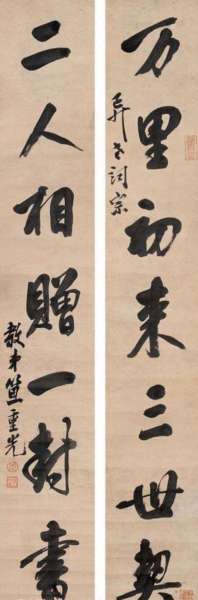 万里初来三世契
弅老词宗
二人相赠一封書
教弟笪重光